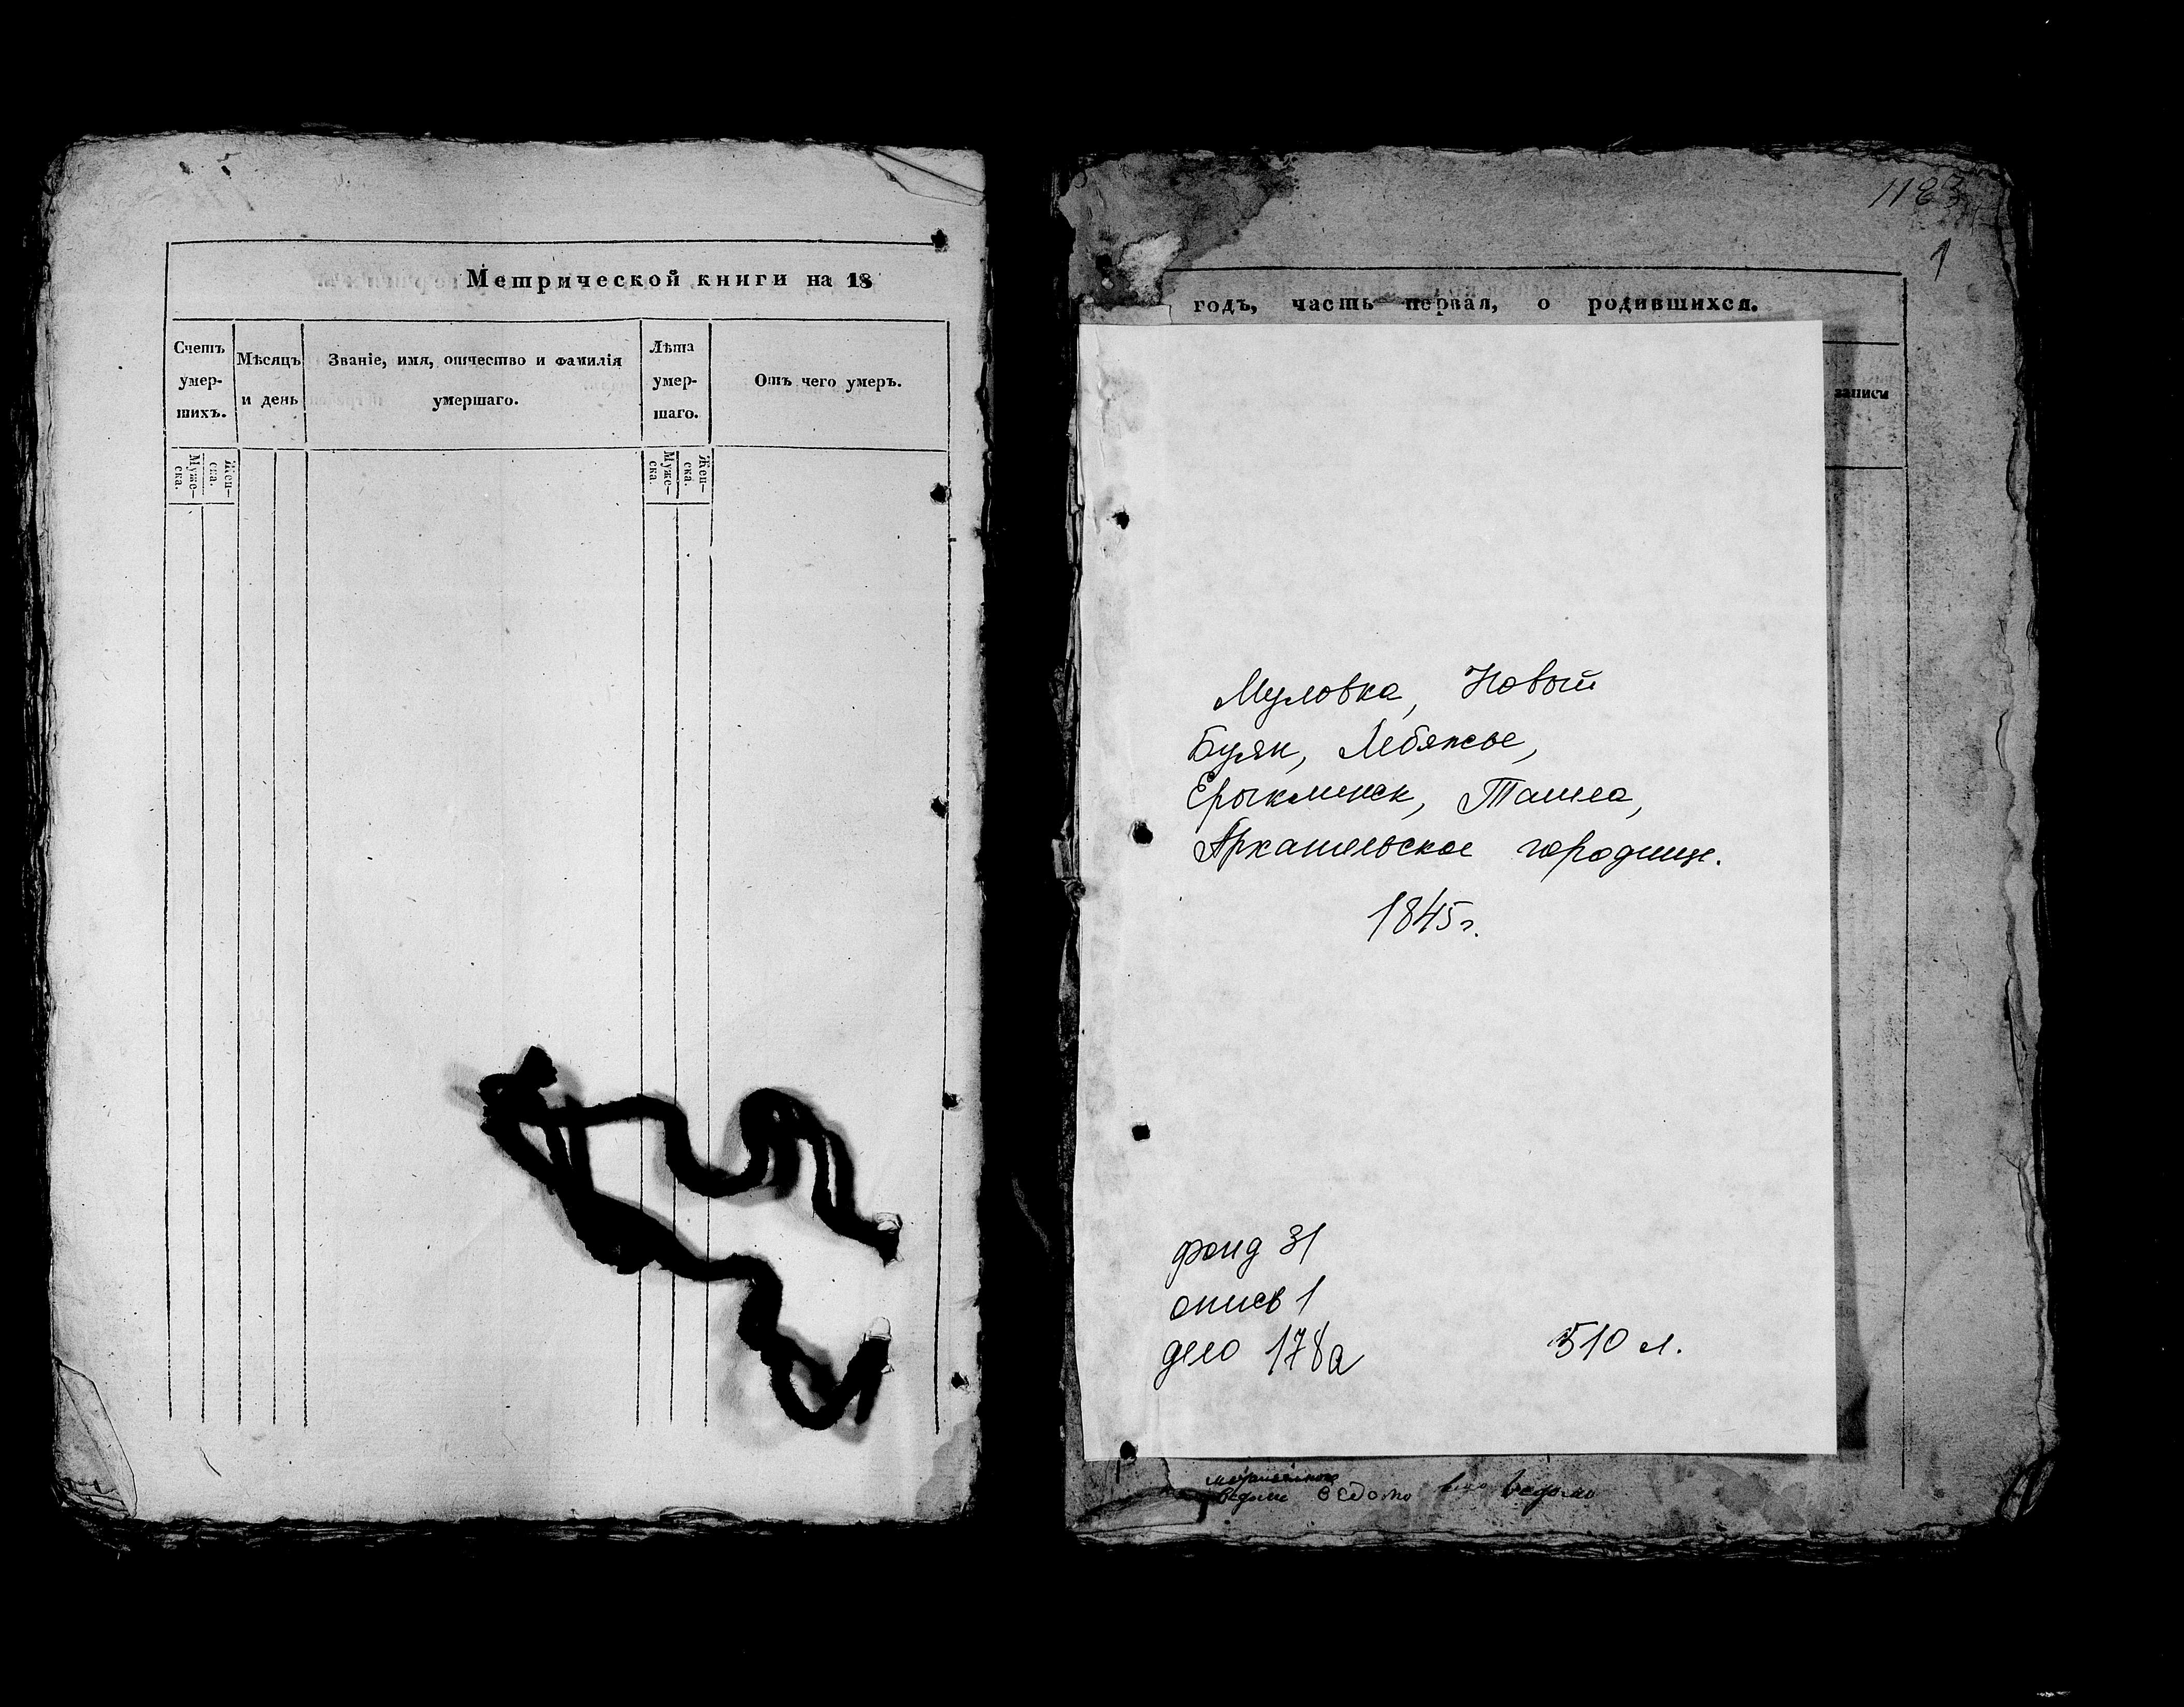 Метрической книги на 18
Счетъ умер- шихъ.
Мѣсяцъ и день
Званіе, имя, отчество и фамилія умершаго.
Лѣта умер- шаго.
Отъ чего умеръ.
Муже- ска.
Жен- ска.
Муже- ска.
Жен- ска.
1
годъ, часть первая, о родившихся.
записи
Муловка, Новый
Буян, Лебяжье,
Ерыклинск, Ташла,
Архангельское городище.
1845 г.
фонд 31
опись 1
дело 178а
510 л.
ведомо